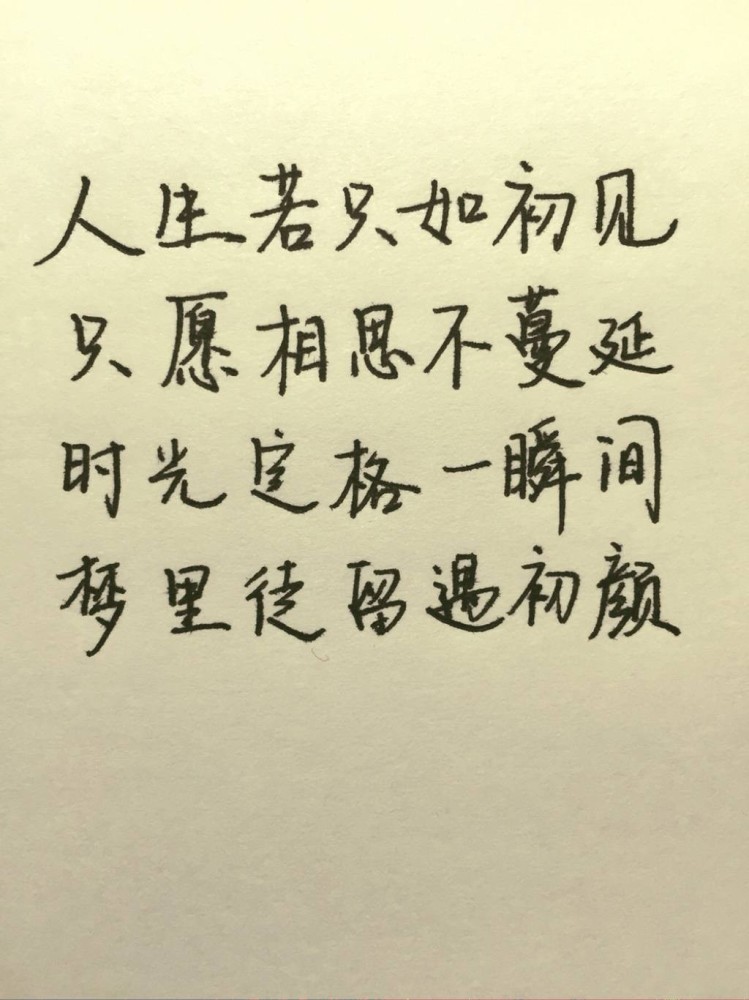 人生若只如初见
只愿相思不蔓延
时光定格一瞬间
梦里徒留遇初颜